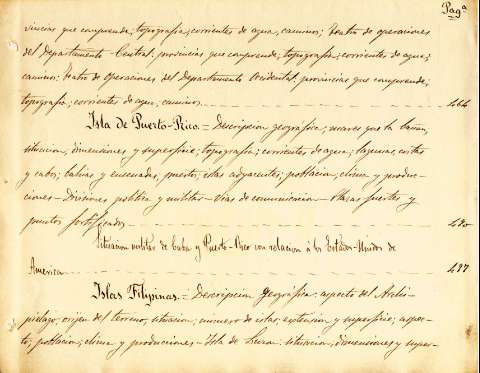 Pagª
vincias que comprende, topografia, corrientes de agua, caminos; Teatro de operaciones
del Departamento Central, provincias que comprende, topografia, corrientes de agua;
caminos: Teatro de operaciones del Departamento Occidental, provincias que comprende;
topografia, corrientes de agua, caminos
Isla de Puerto-Rico. = Descripcion geografica, mares que la bañan,
situacion, dimensiones y superficie; topografia; corrientes de agua; lagunas, costas
y cabos; bahias y ensenadas, puertos, islas adyacentes; poblacion, clima y produc-
ciones - Divisiones politica y militar - Vias de comunicacion - Plazas fuertes y
puntos fortificados
Situacion militar de Cuba y Puerto-Rico con relacion á los Estados-Unidos de
America 497
Islas Filipinas. = Descripcion Geográfica: aspecto del Archi-
pielago, origen del terreno, situacion, numero de islas, extension y superficie; aspec-
to, poblacion, clima y producciones - Isla de Luzon: situacion, dimensiones y super-